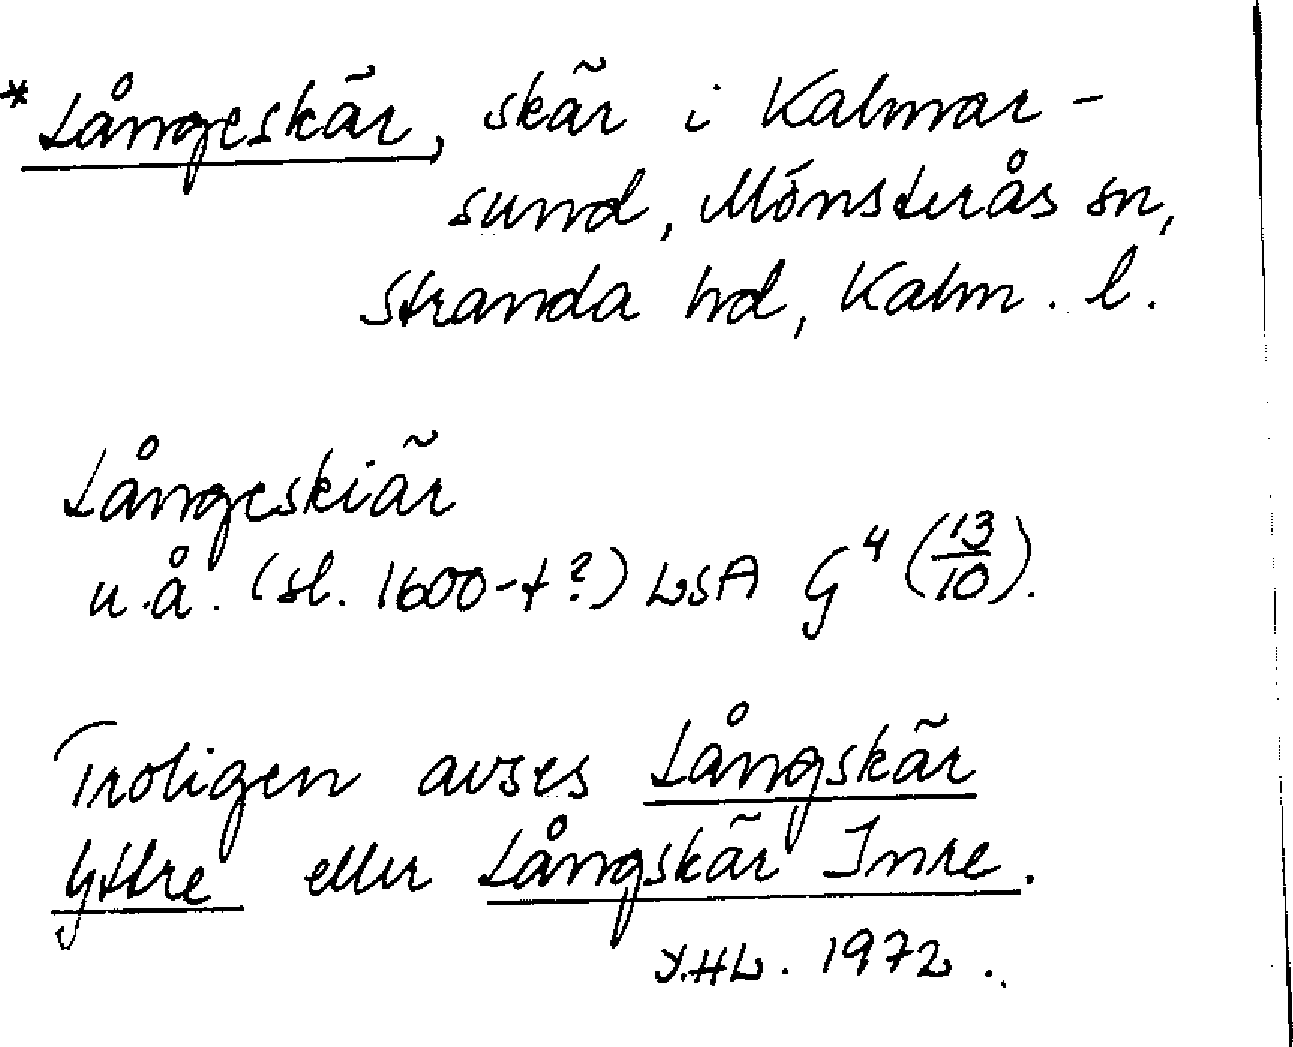 *Långeskär, skär i Kalmar-
sund, Mönsterås sn,
Stranda hd, Kalm. l.
Långeskiär
u.å. (sl. 1600-t?) LSA G⁴ (13/10).
Troligen avses Långskär
Yttre eller Långskär Inre.
Y.HL. 1972.